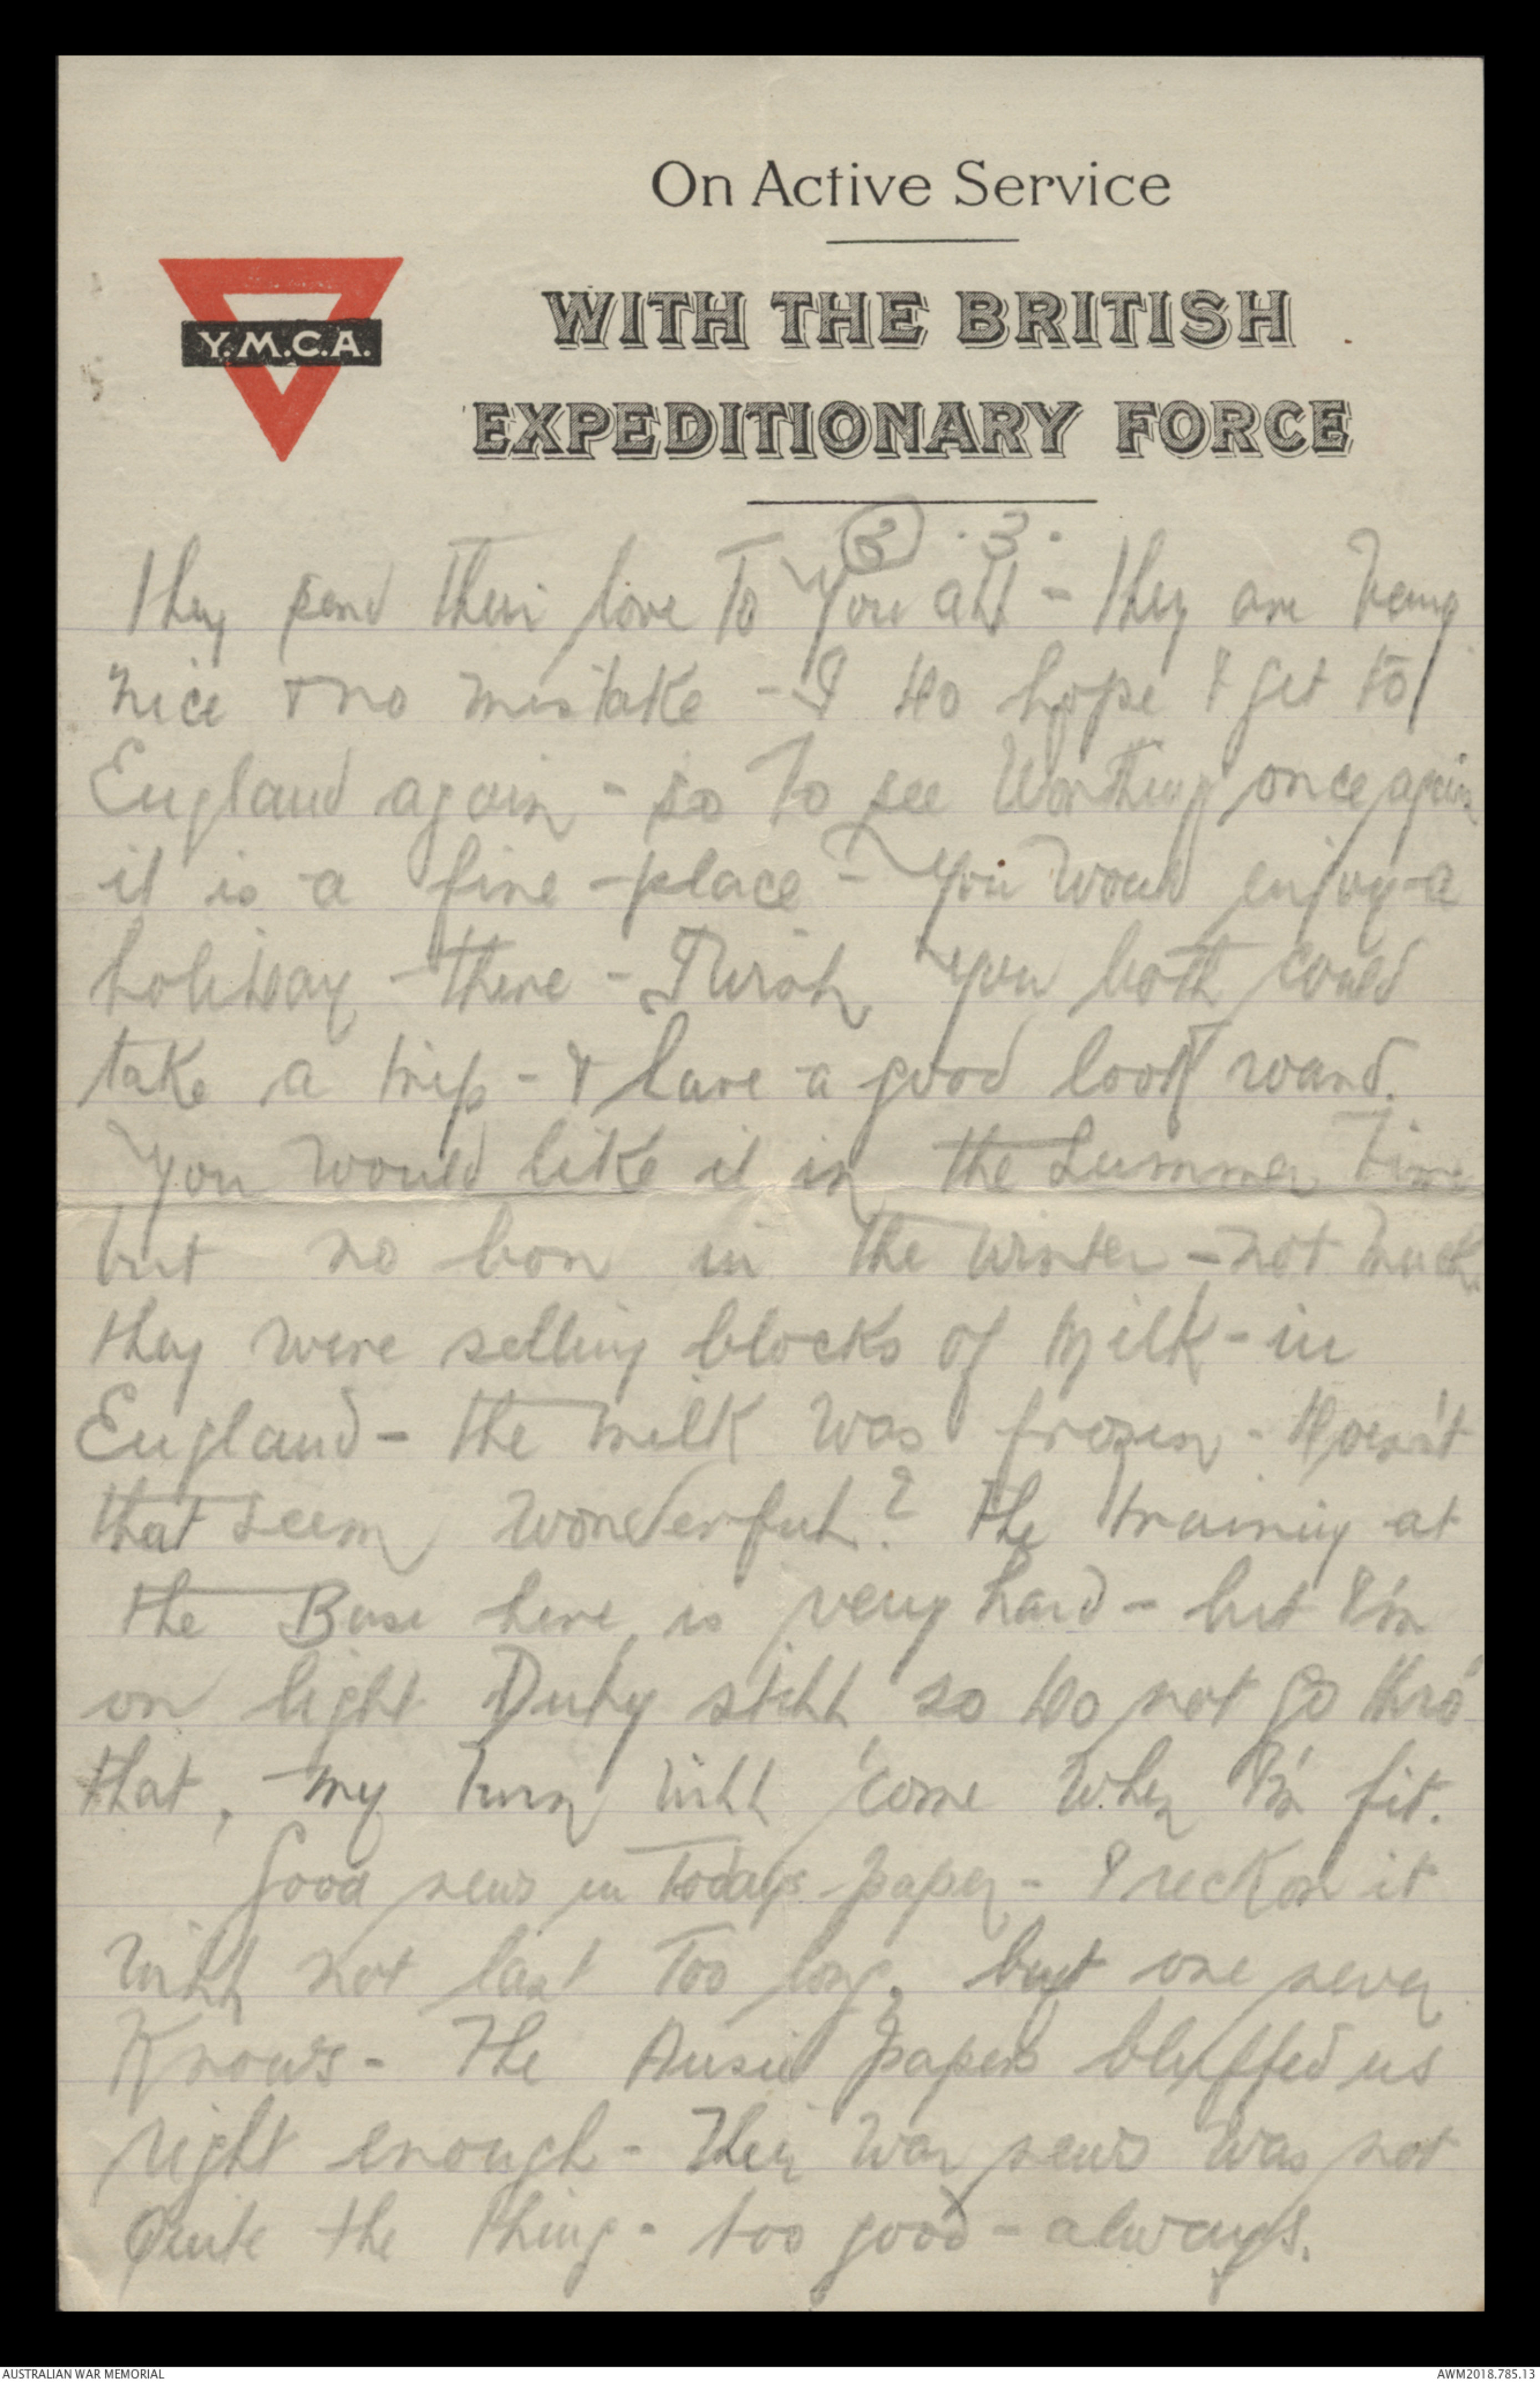 On Active Service
WITH THE BRITISH
Y.M.C.A.
EXPEDITIONARY FORCE
3 . 3 .
They send their love to you all - they are very
nice & no mistake - I do hope I get to
England again - so to see Worthing once again
it is a fine place - you would enjoy a
holiday there - I wish you both could
take a trip - & have a good look round.
You would like it in the summer time
but no bon in the winter - not much.
they were selling blocks of milk - in
England - the milk was frozen - doesn't
that seem wonderful? The training at
the Base here, is very hard - but I'm
on light Duty still so do not go thro'
that, my turn will come when I'm fit.
Good news in todays paper - I reckon it
will not last too long, but one never
knows - The Ausie papers bluffed us
right enough - Their war news was not
Quite the thing - too good - always.
AUSTRALIAN WAR MEMORIAL
AWM2018.785.13